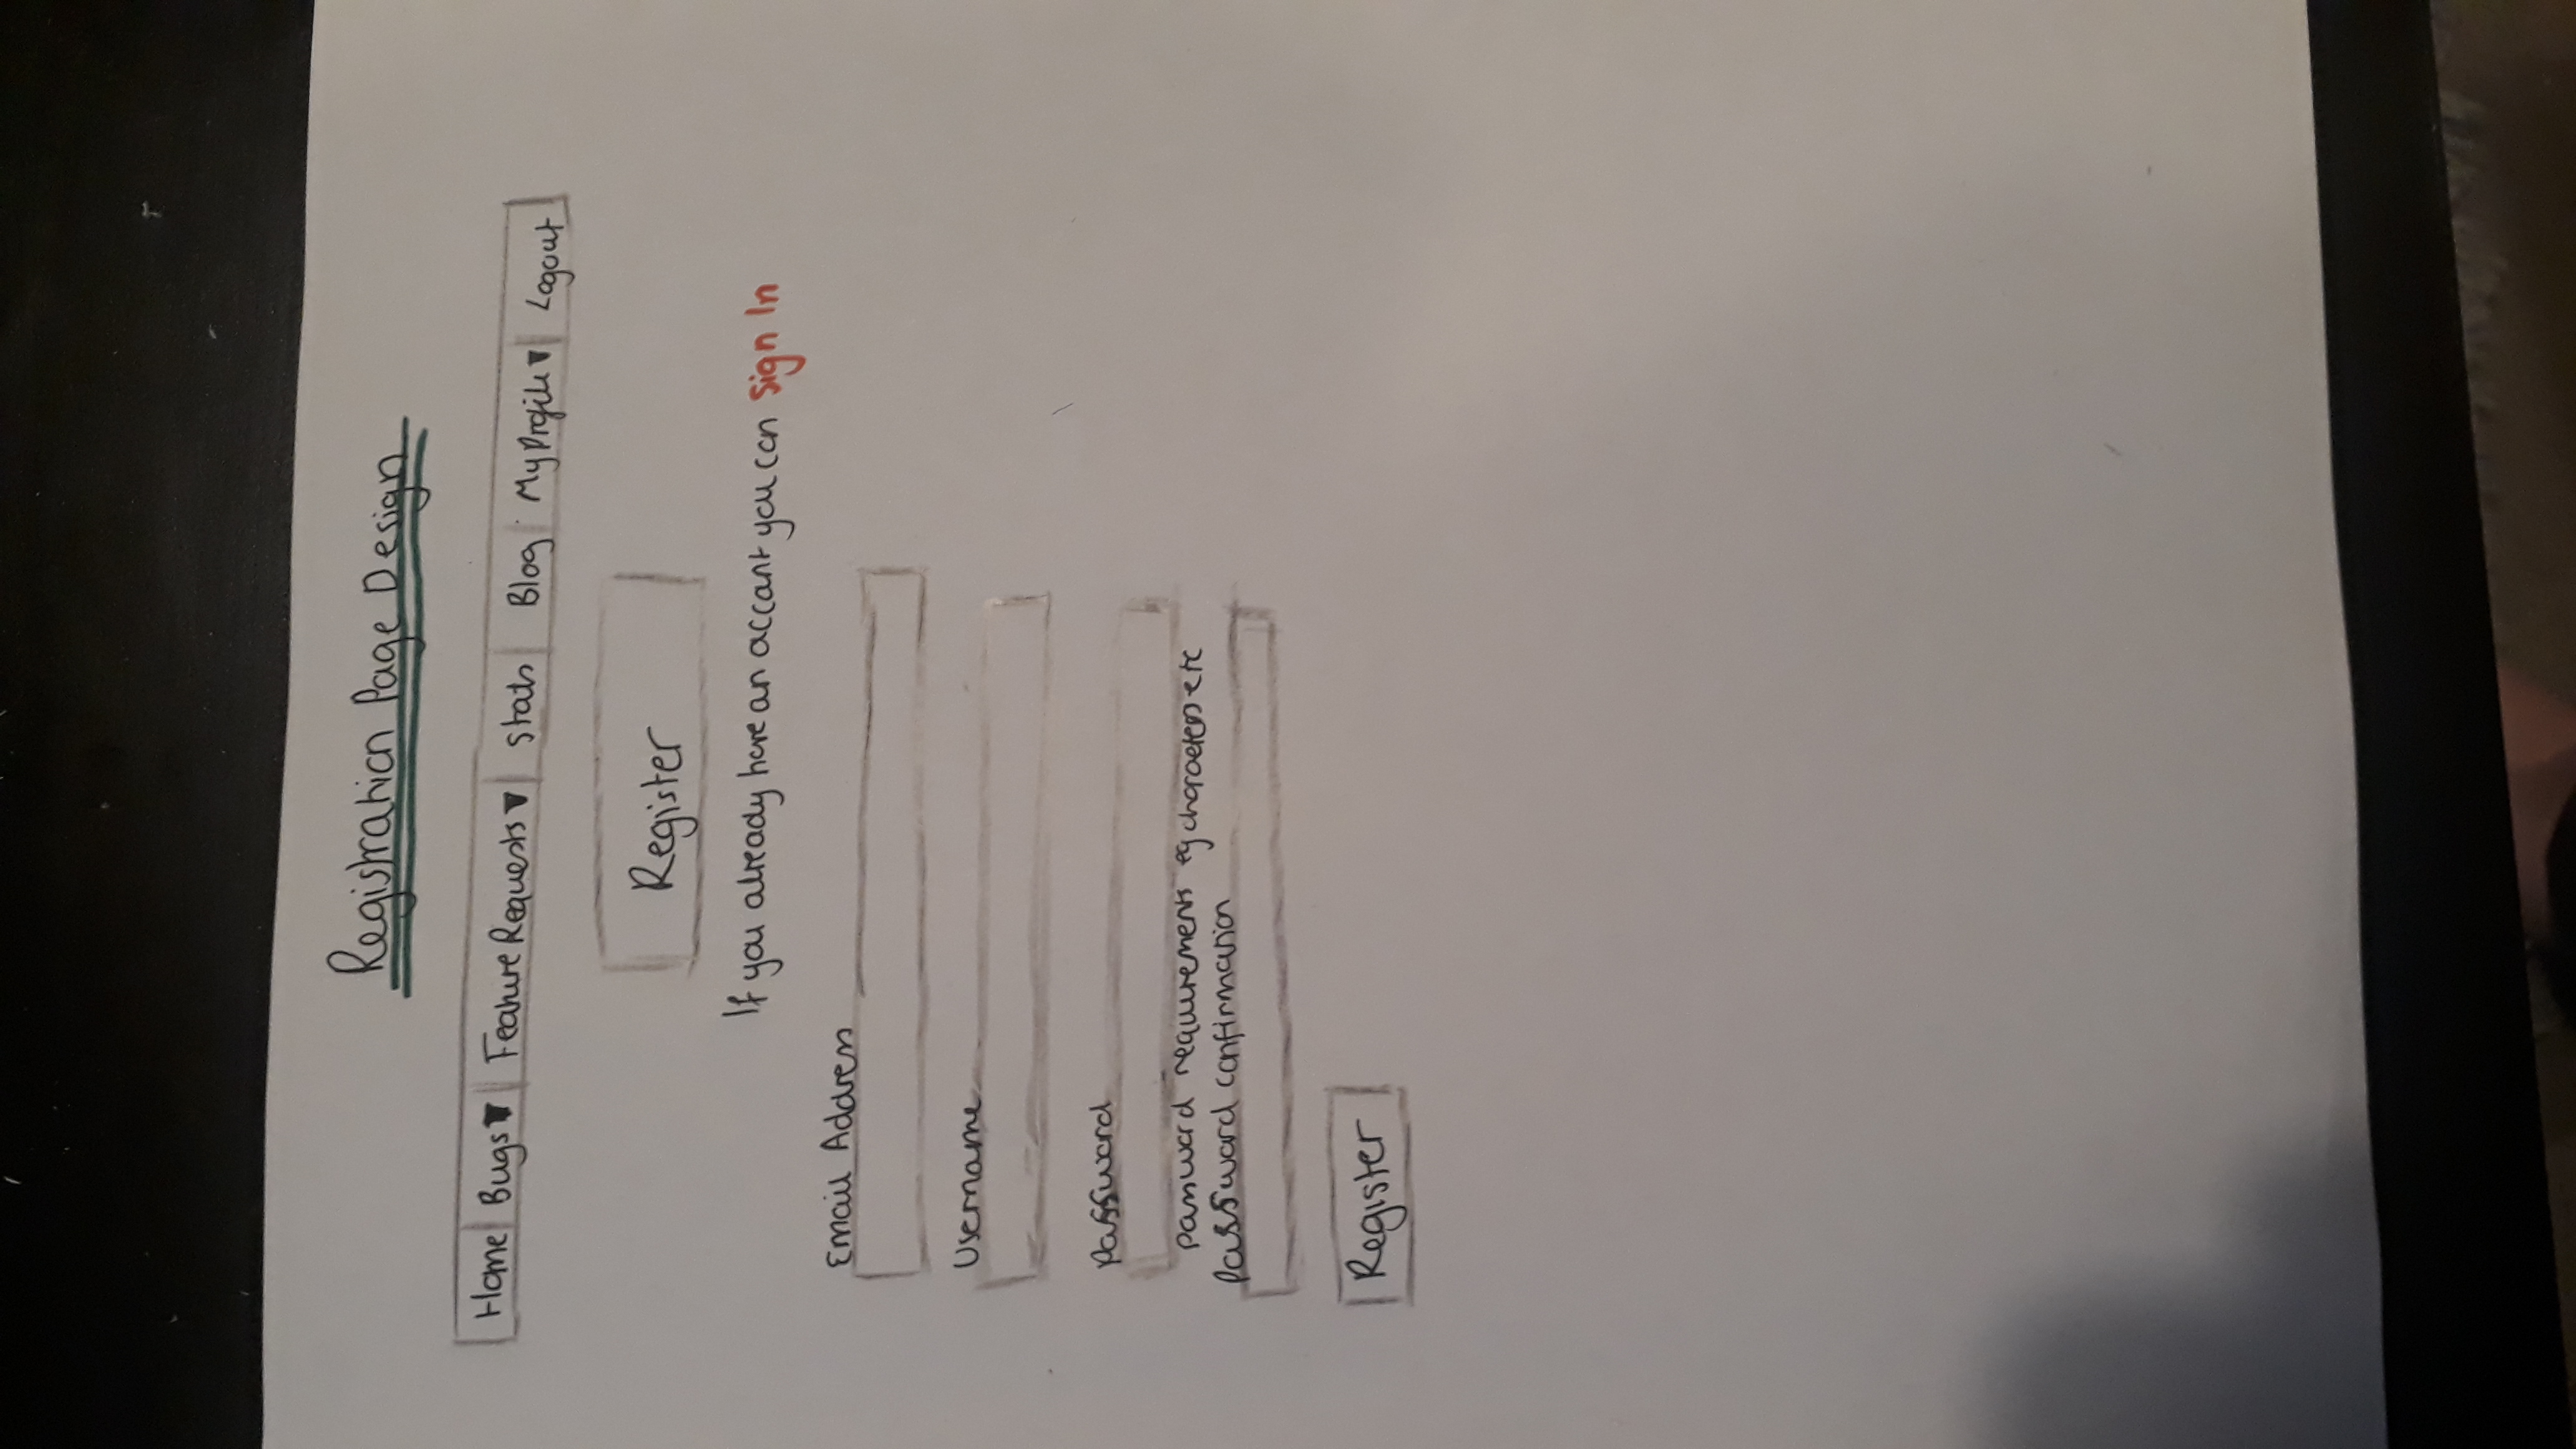 Registration Page Design
Home Bugs▼ Feature Requests▼ Stats Blog My Profile▼ Logout
Register
If you already have an account you can Sign In
Email Address
Username
Password
password requirements eg characters etc
Password confirmation
Register